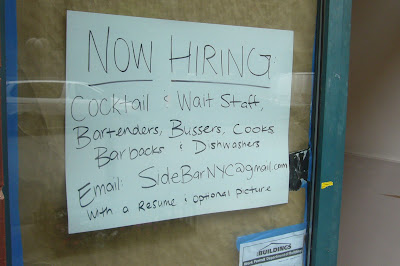 NOW HIRING
Cocktail & Wait Staff,
Bartenders, Bussers, Cooks
Barbacks & Dishwashers
Email: SIdeBarNYC@gmail.com
with a Resume & optional picture
BUILDINGS